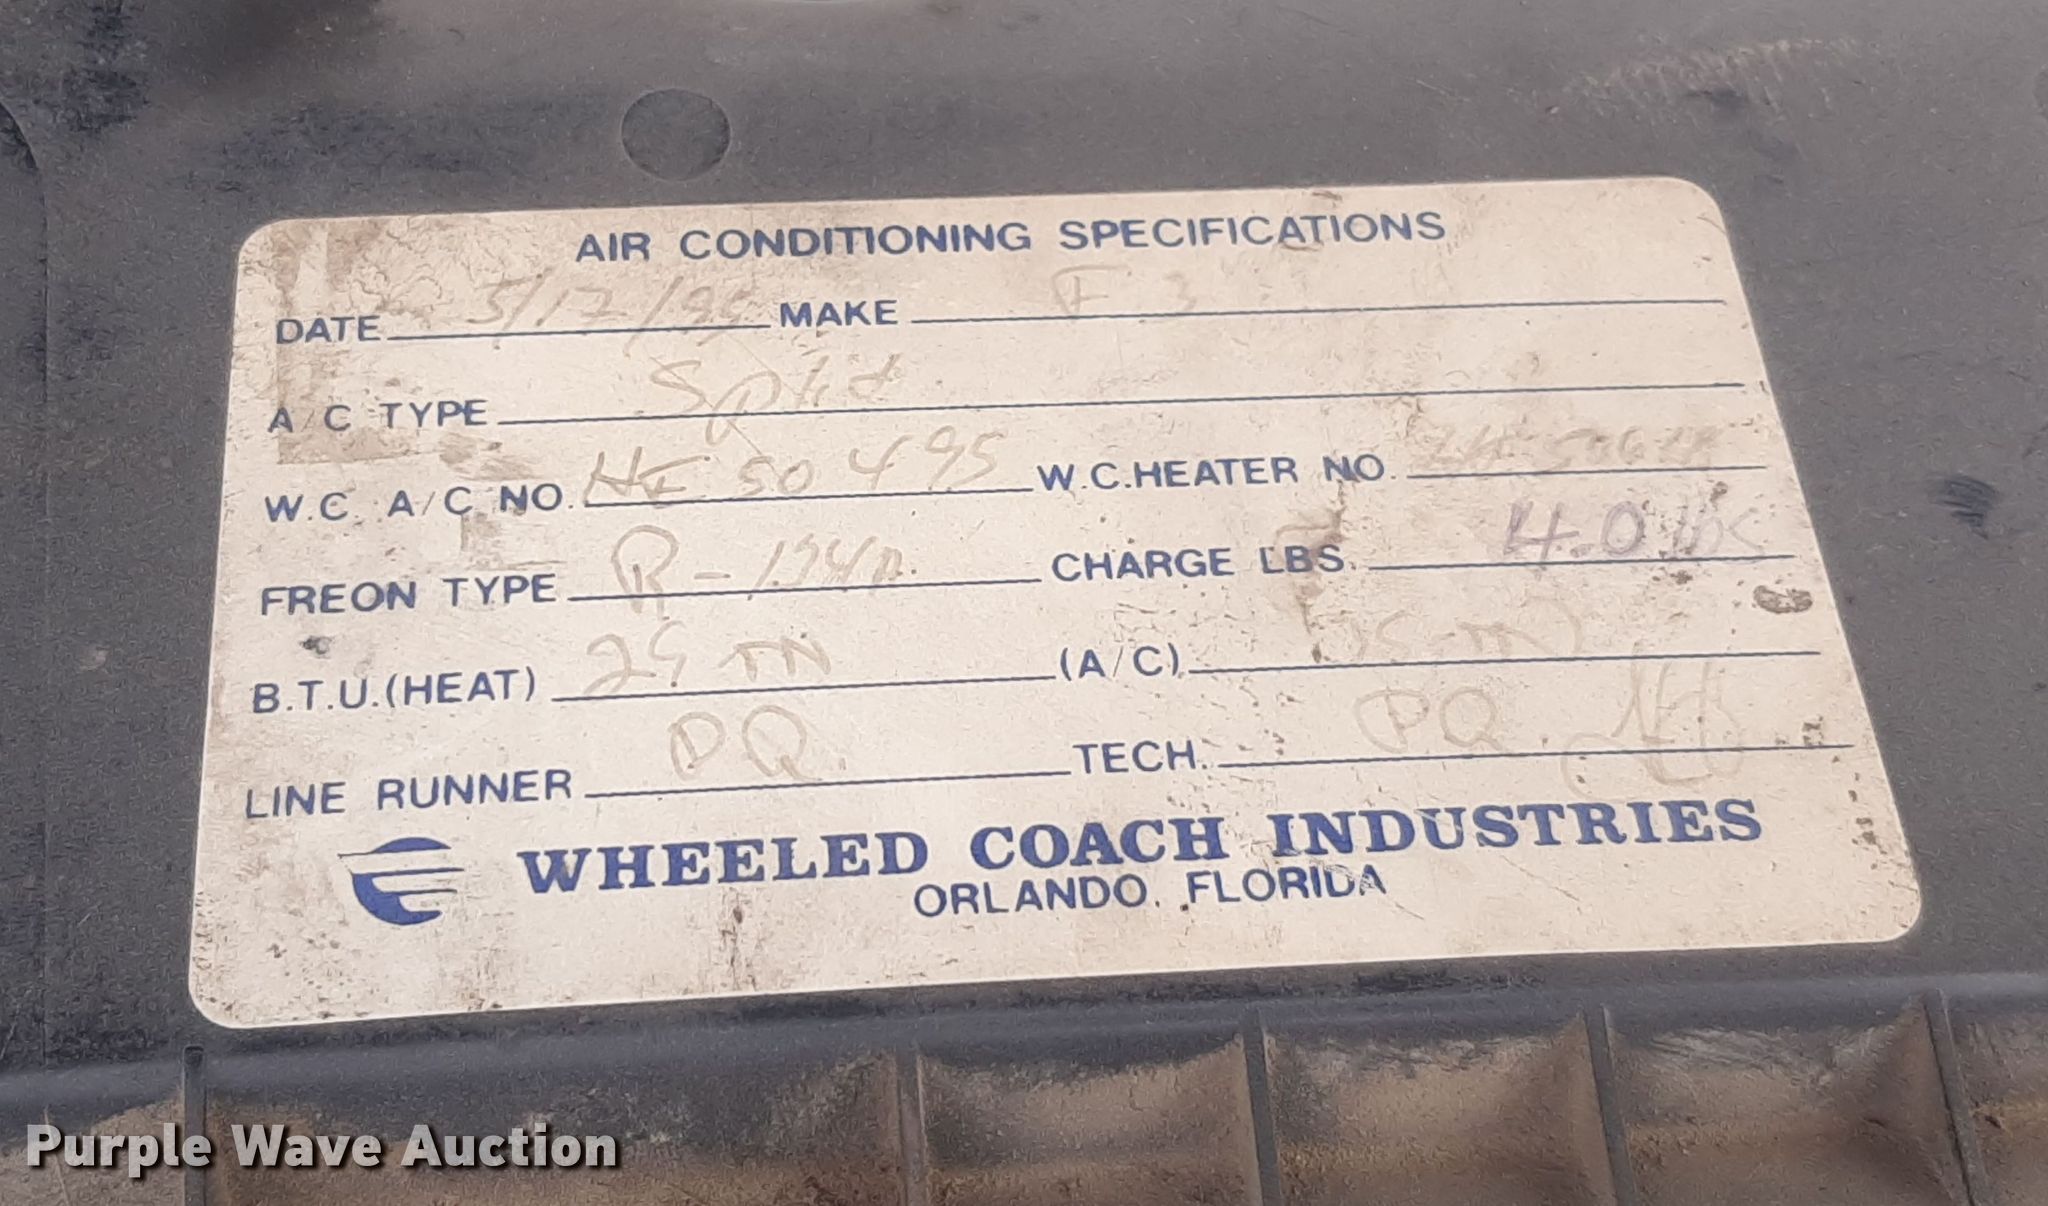 AIR CONDITIONING SPECIFICATIONS
DATE 5/17/95 MAKE F 3
A/C TYPE Split
W.C. A/C NO. 50495 W.C.HEATER NO.
FREON TYPE R-134A. CHARGE LBS. 4.0 lbs
B.T.U.(HEAT) (A/C)
LINE RUNNER DQ. TECH. DQ.
WHEELED COACH INDUSTRIES
ORLANDO, FLORIDA
Purple Wave Auction